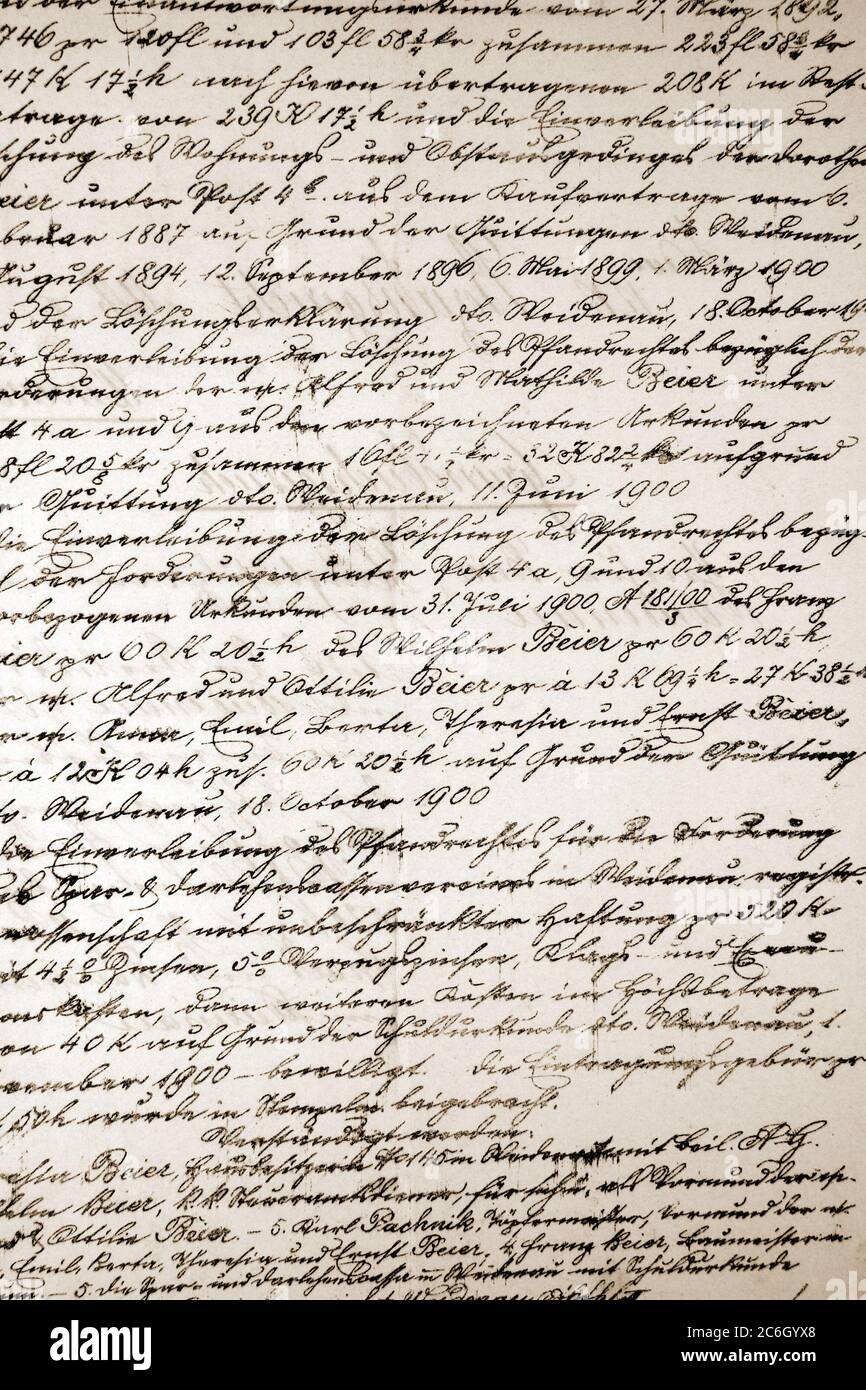 der Verantwortungsurkunde vom 27. März 1892,
746 pr 120fl und 103fl 58¾ kr zusammen 223fl 58¾ kr
447 K 17½ h nach hievon übertragenen 208 K im Rest-
trage von 239 K 17½ h und die Einverleibung der
schung des Wohnungs- und Obstausgedinges der Dorothea
eier unter Post 4 b. aus dem Kaufvertrage vom 6.
bruar 1887 auf Grund der Quittungen dto. Weidenau,
August 1894, 12. September 1896, 6. Mai 1899, 1. März 1900
d der Löschungserklärung dto. Weidenau, 18. October 19
ie Einverleibung der Löschung des Pfandrechtes bezüglich der
rderungen der m. Alfred und Mathilde Beier unter
st 4 a und 9 aus den vorbezeichneten Urkunden pr
8fl 20⅝ kr zusammen 16fl kr = 32 K 82½ h aufgrund
r Quittung dto. Weidenau, 11. Juni 1900
die Einverleibung der Löschung des Pfandrechtes bezüg-
l der Forderungen unter Post 4 a, 9 und 10 aus den
orbezogenen Urkunden vom 31. Juli 1900, A 181/00/3 des Franz
eier pr 60 K 20½ h, des Wilhelm Beier pr 60 K 20½ h,
r m. Alfred und Ottilie Beier pr à 13 K 69¼ h = 27 K 38½ h
r m. Anna, Emil, Berta, Theresia und Ernst Beier,
à 12 K 04 h zus. 60 K 20½ h auf Grund der Quittung
to. Weidenau, 18. October 1900
die Einverleibung des Pfandrechtes für die Forderung
des Spar- & Darlehenscassenvereines in Weidenau, registr.
nossenschaft mit unbeschränkter Haftung pr 520 K-
it 4½% Zinsen, 5% Verzugszinsen, Klags- und Execu-
onskosten, dann weiteren Kosten im Höchstbetrage
on 40 K auf Grund der Schuldurkunde dto. Weidenau, 1.
vember 1900 - bewilligt. Die Eintragungsgebür pr
50h wurde in Stempeln beigebracht.
Verständigt werden:
esia Beier, Hausbesitzerin No 145 in Weidenau mit Beil. A G.
helm Beier, k.k. Steueramtsdiener, für sich u. als Vormund der m.
& Ottilie Beier. - 3. Karl Pachnik, Töpfermeister, Vormund der m.
, Emil, Berta, Theresia und Ernst Beier, 4. Franz Beier, Baumeister in
- 5. die Spar- und Darlehenscassa in Weidenau mit Schuldurkunde
alamy
alamy
Image ID: 2C6GYX8
www.alamy.com